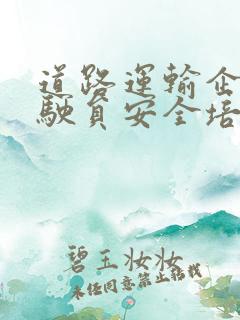 道路運輸企
駛員安全培
碧玉妝妝
未经同意禁止搬栈